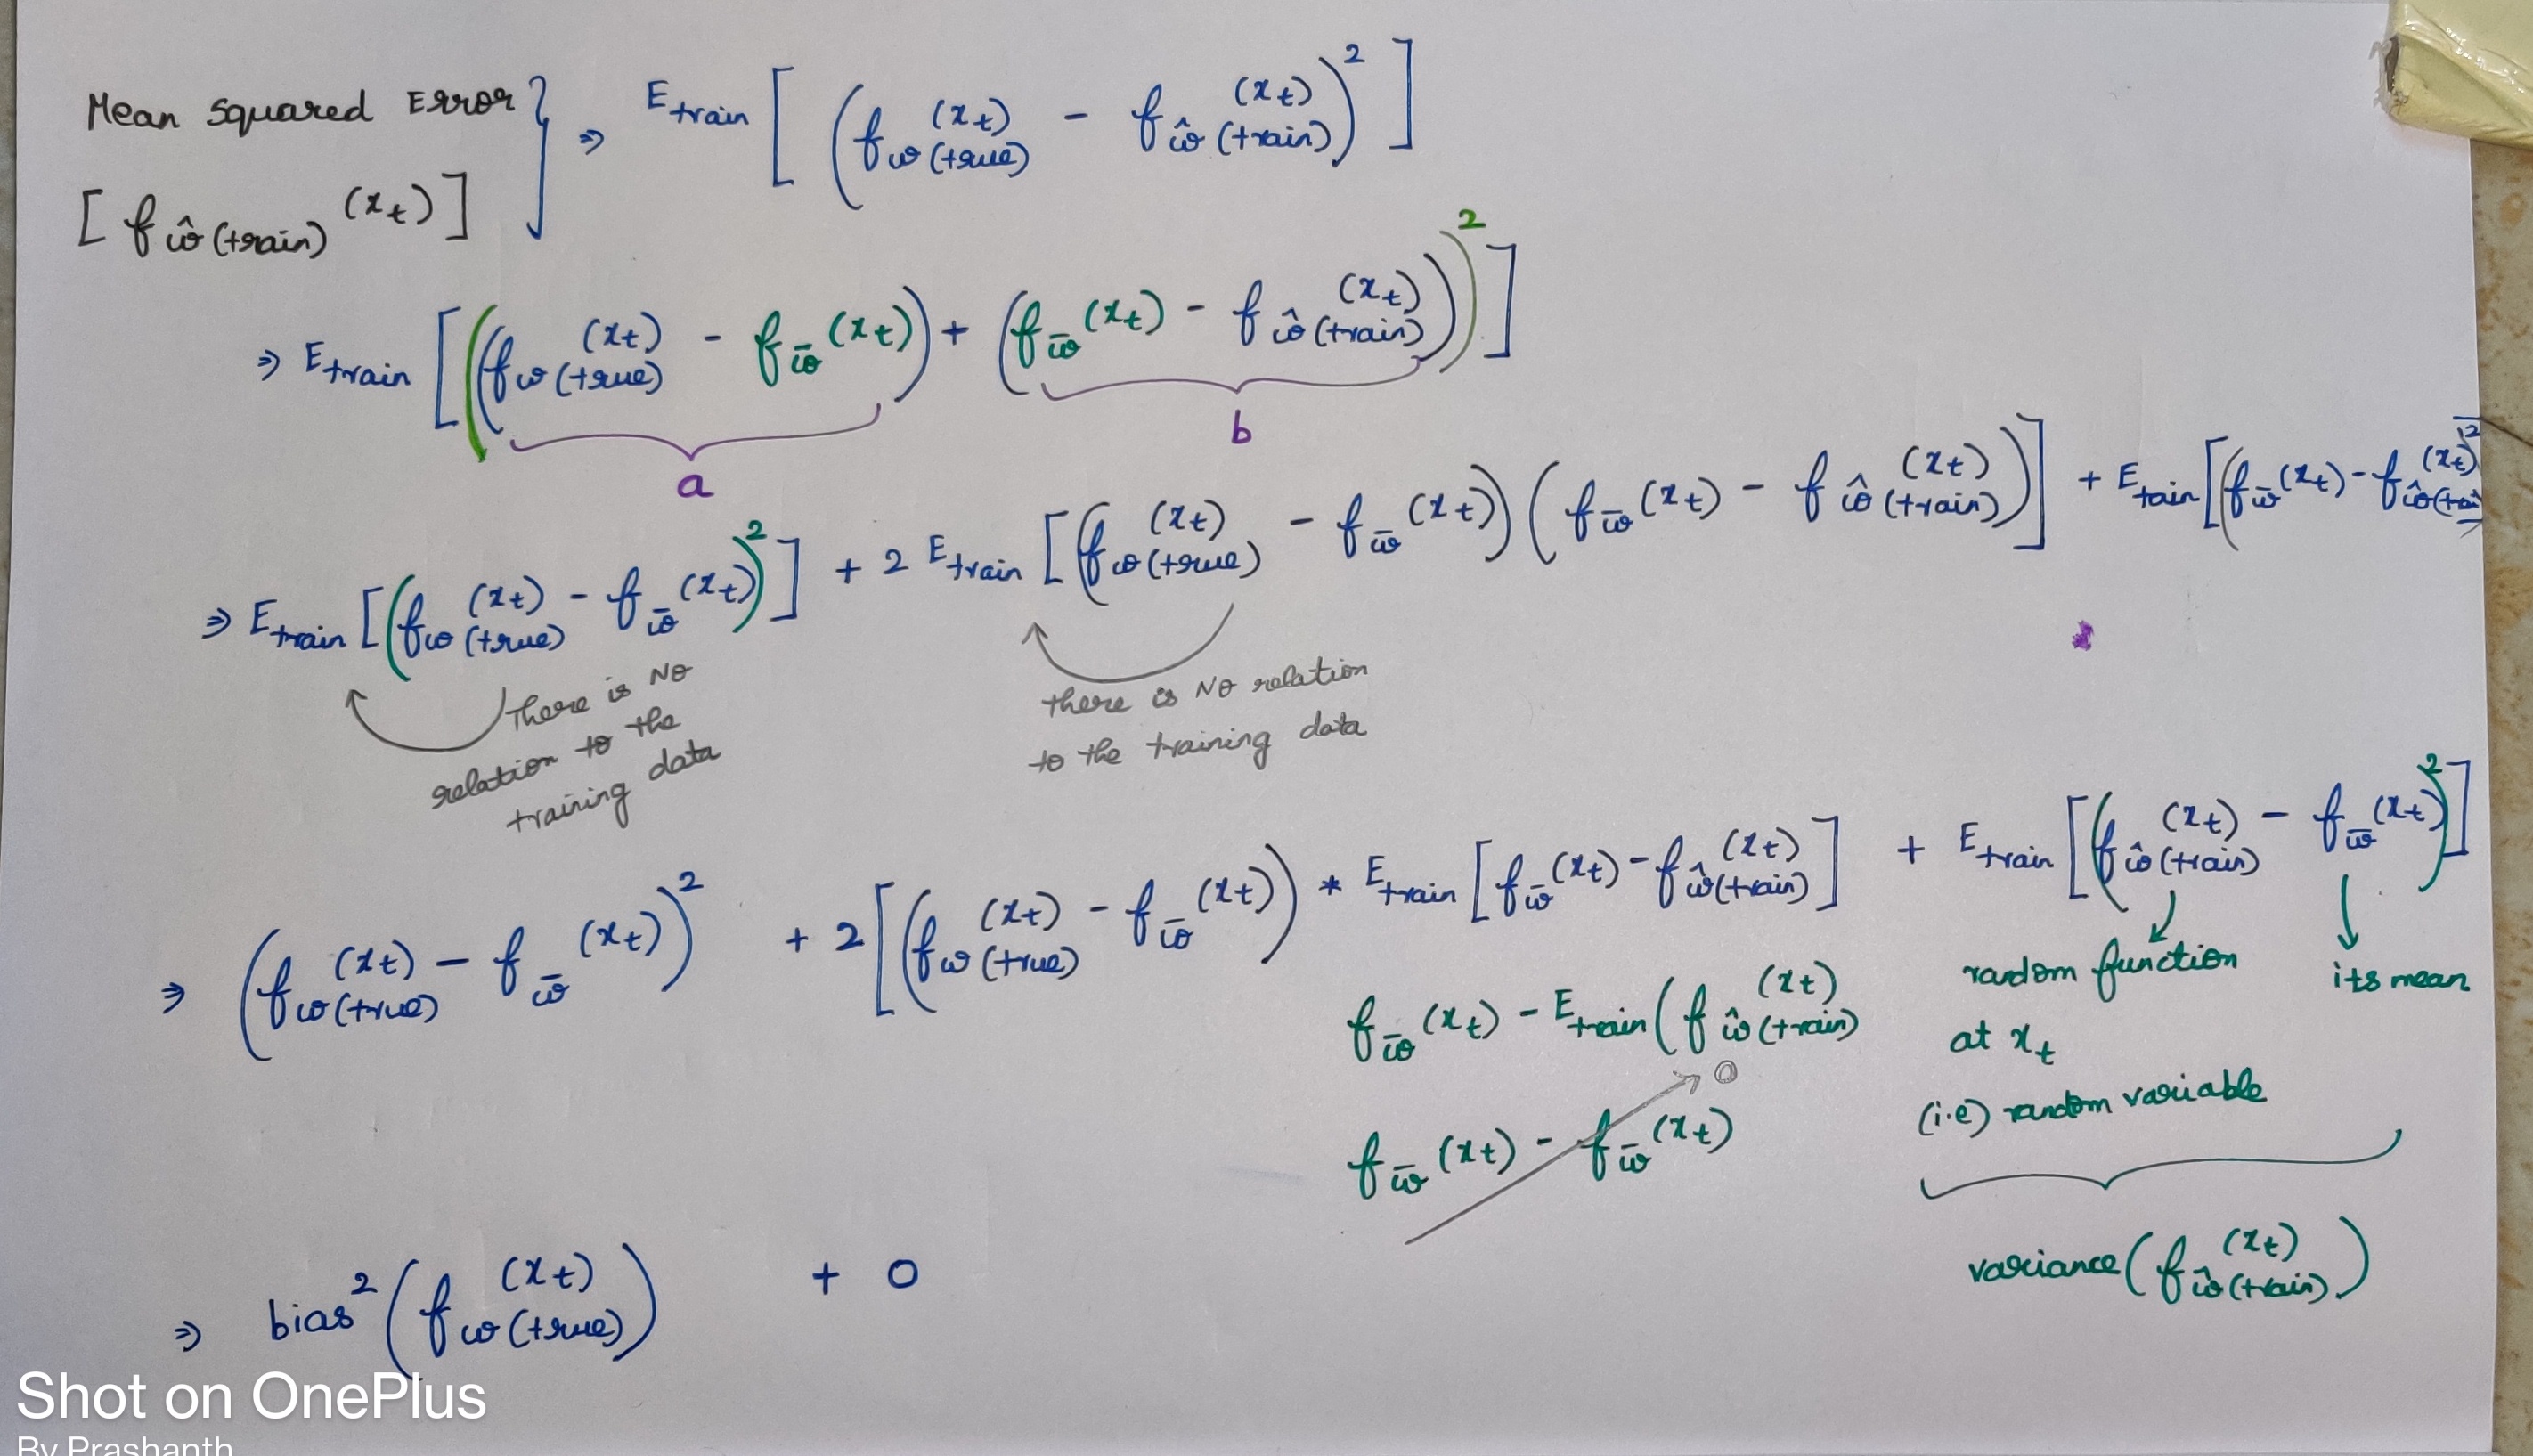 Mean squared Error } ⇒ E_train [ ( f_w(true) (x_t) - f_ŵ(train) (x_t) )² ]
[ f_ŵ(train) (x_t) ]
⇒ E_train [ ( ( f_w(true) (x_t) - f_w̄ (x_t) ) + ( f_w̄ (x_t) - f_ŵ(train) (x_t) ) )² ]
a b
⇒ E_train [ ( f_w(true) (x_t) - f_w̄ (x_t) )² ] + 2 E_train [ ( f_w(true) (x_t) - f_w̄ (x_t) ) ( f_w̄ (x_t) - f_ŵ(train) (x_t) ) ] + E_tain [ ( f_w̄ (x_t) - f_ŵ(trai (x_t) )² ]
There is NO
relation to the
training data
there is NO relation
to the training data
⇒ ( f_w(true) (x_t) - f_w̄ (x_t) )² + 2 [ ( f_w(true) (x_t) - f_w̄ (x_t) ) * E_train [ f_w̄ (x_t) - f_ŵ(train) (x_t) ] + E_train [ ( f_ŵ(train) (x_t) - f_w̄ (x_t) )² ]
f_w̄ (x_t) - E_train ( f_ŵ(train) (x_t)
f_w̄ (x_t) - f_w̄ (x_t) → 0
random function
at x_t
(i.e) random variable
its mean
variance ( f_ŵ(train) (x_t) )
⇒ bias² ( f_w(true) (x_t) ) + 0
Shot on OnePlus
By Prashanth